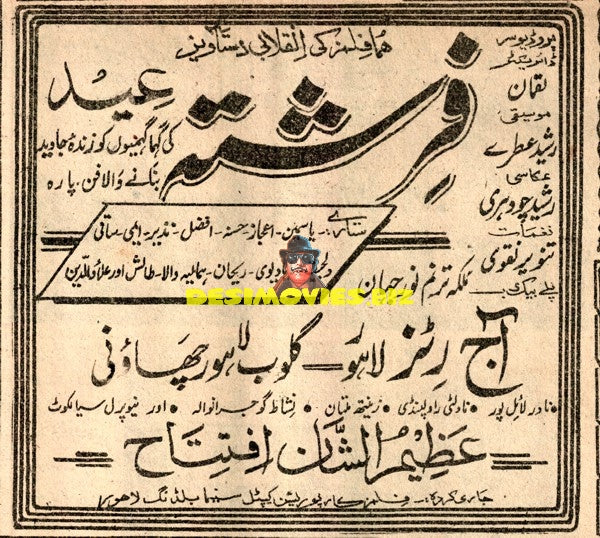 ہما فلمز کی انقلابی دستاویز
فرشتہ
عید
کی گہما گہمیوں کو زندۂ جاوید
بنانے والا فن پارہ
پروڈیوسر
ڈائریکٹر
لقمان
موسیقی
رشید عطرے
عکاسی
رشید چودہری
نغمات
تنویر نقوی
پلے بیک
ملکہ ترنم نورجہاں
ستارے:۔ یاسمین۔ اعجاز۔ حسنہ۔ افضل۔ نذیر۔ ایمی۔ ساقی
دہلوی۔ ریحان۔ ہمالیہ والا۔ طالش اور علاؤالدین
DESIMOVIES.BIZ
آج رٹز لاہور — گلوب لاہور چھاؤنی
نادر لائل پور • ناولٹی راولپنڈی • زینتھ ملتان • نشاط گوجرانوالہ • اور نیوپرل سیالکوٹ
عظیم الشان افتتاح
جاری کردہ:۔ فلمز کارپوریشن کیپٹل سنیما بلڈنگ لاہور